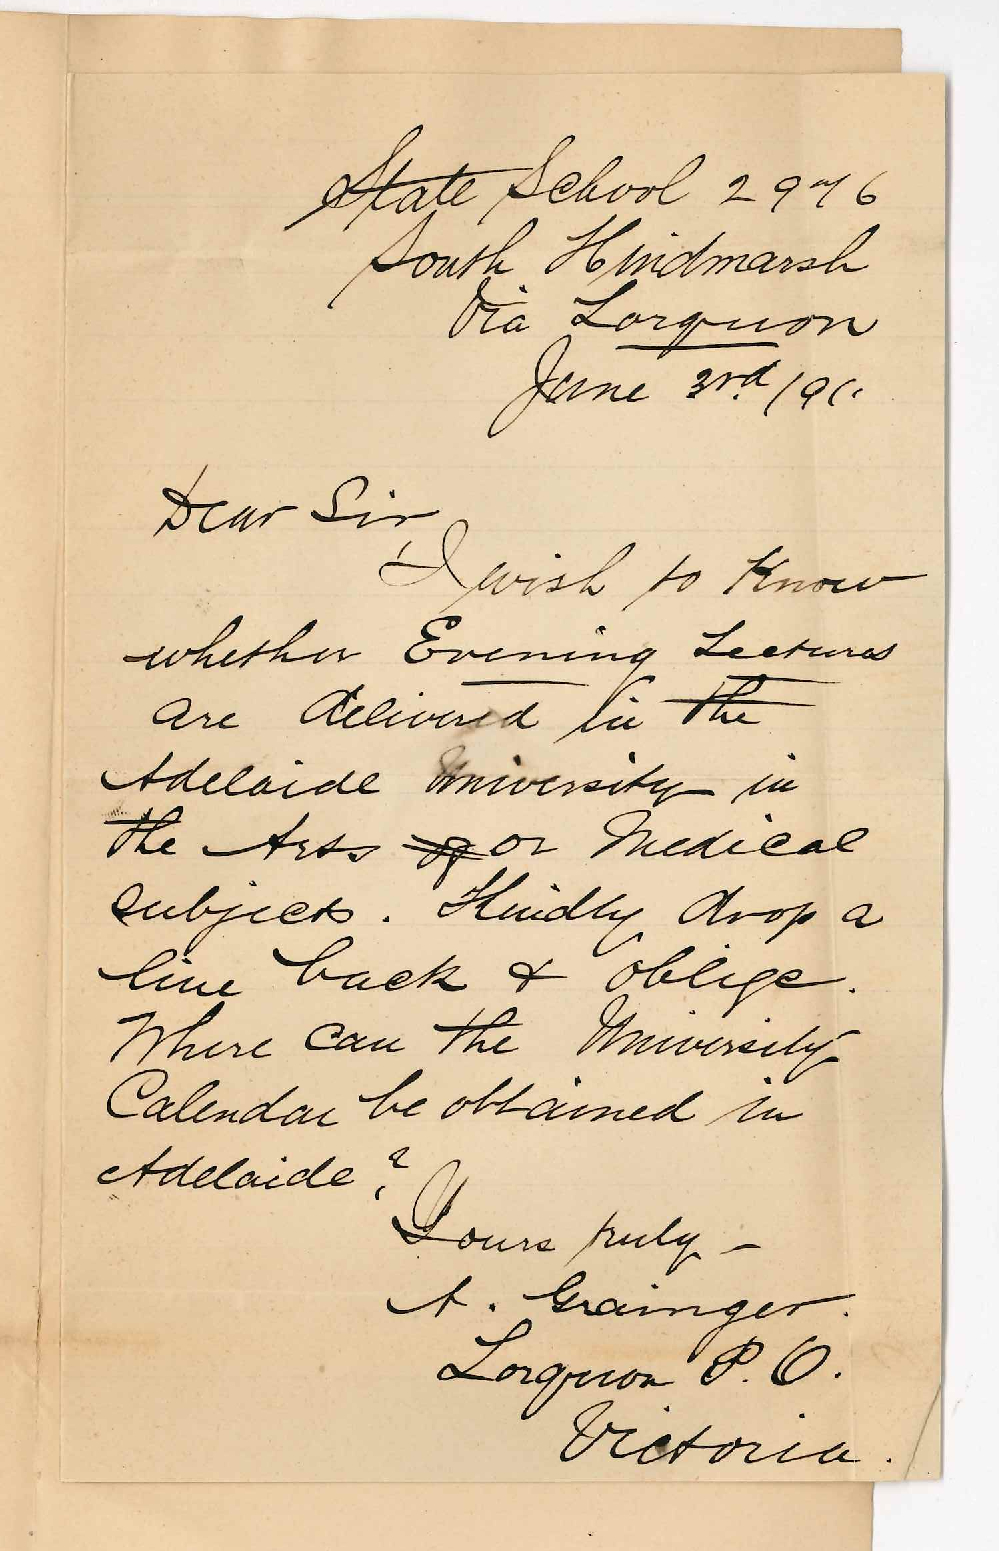 State School 2976
South Hindmarsh
Via Lorquon
June 3rd/91.
Dear Sir
I wish to know
whether Evening Lectures
are delivered in the
Adelaide University in
the Arts or Medical
subjects. Kindly drop a
line back & oblige.
Where can the University
Calendar be obtained in
Adelaide?
Yours truly –
A. Grainger.
Lorquon P. O.
Victoria.